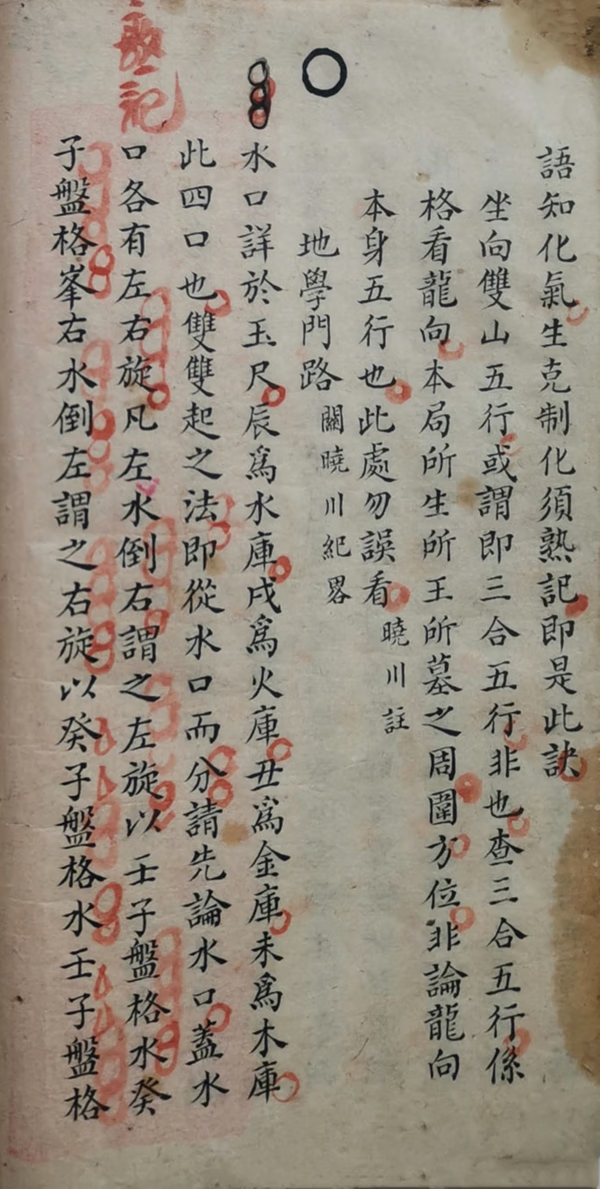 語知化氣生克制化須熟記即是此訣
坐向雙山五行或謂即三合五行非也查三合五行係
格看龍向本局所生所王所墓之周圍方位非論龍向
本身五行也此處勿誤看 曉川註
地學門路 關曉川紀畧
水口詳於玉尺辰爲水庫戌爲火庫丑爲金庫未爲木庫
此四口也雙雙起之法即從水口而分請先論水口蓋水
口各有左右旋凡左水倒右謂之左旋以壬子盤格水癸
子盤格峯右水倒左謂之右旋以癸子盤格水壬子盤格
記